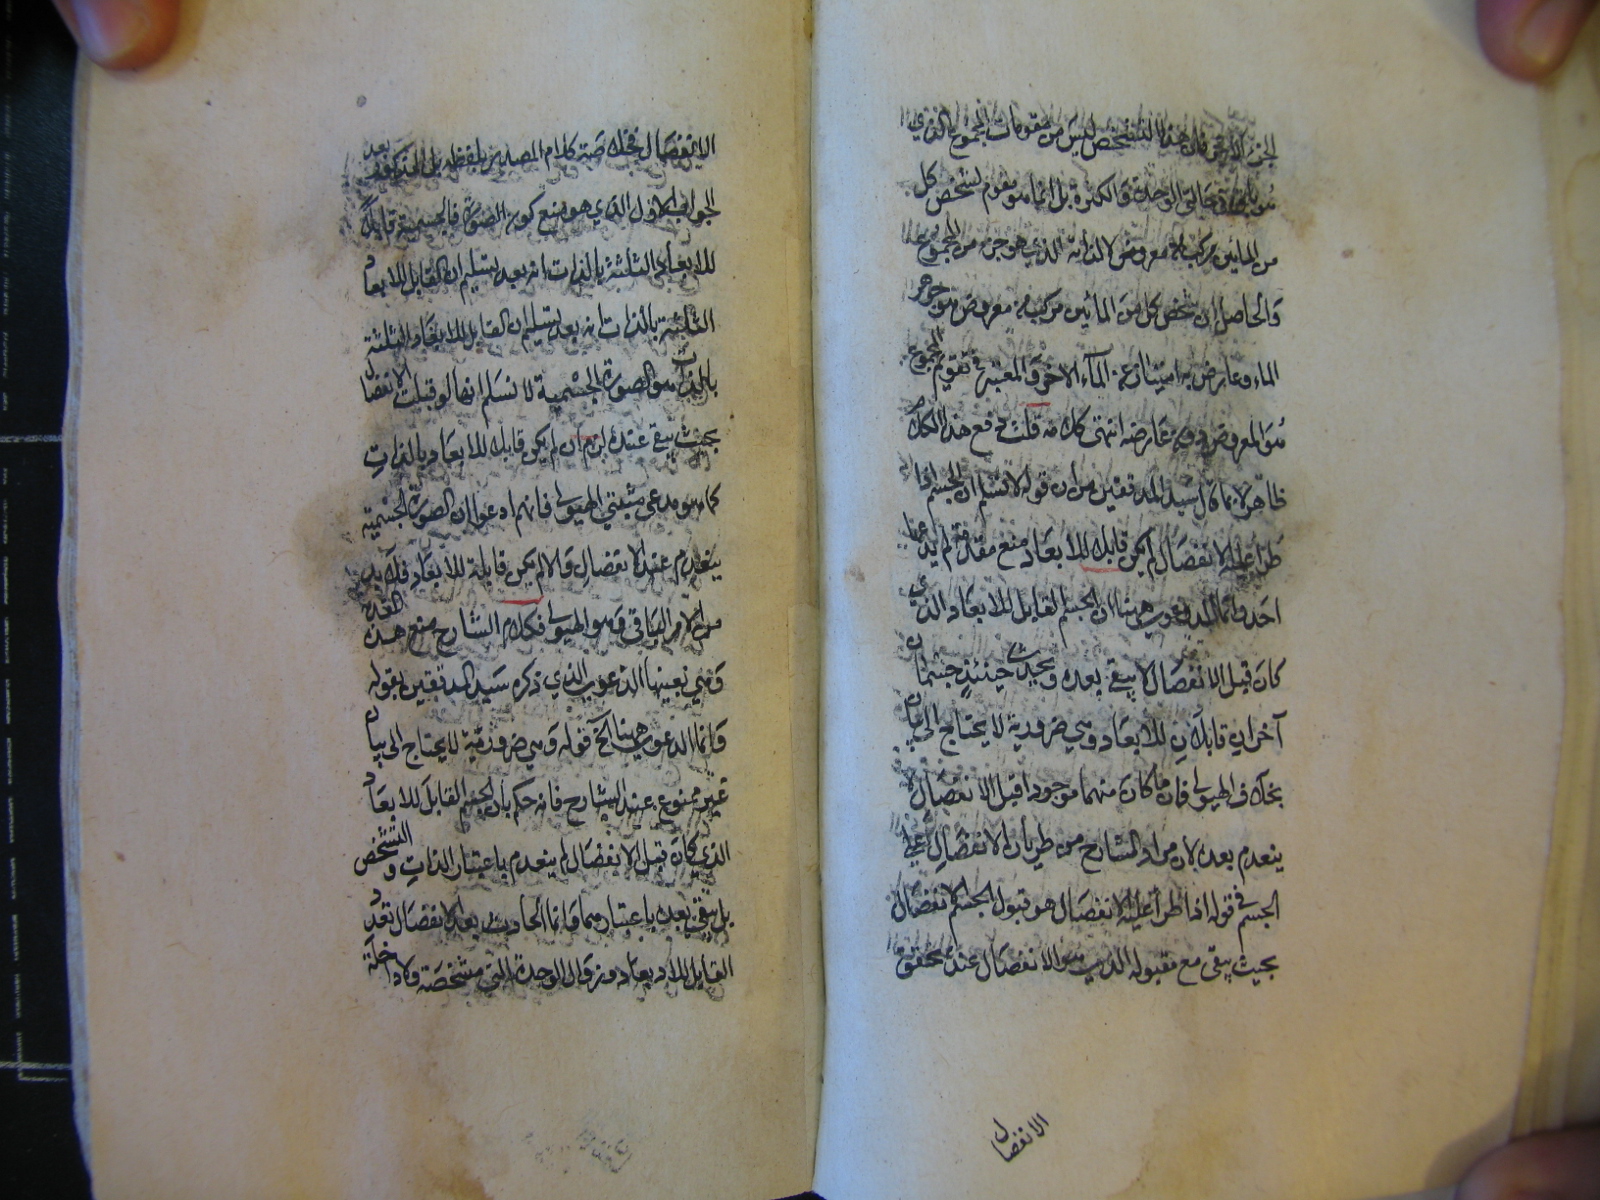 الجزء الآخر فان هذا التشخص ليس من مقومات المجموع الذي
هو باق في حالتي الوحدة والكثرة بل انما هو مقوم لشخص كل
من المائين مركب من معروض الذات الذي هو جزء من المجموع
والحاصل ان شخص كل من المائين مركب من معروض هو جوهر
الماء وعارض به امتيازه عن الماء الآخر والمعتبر في تقويم المجموع
هو المعروض دون عارضه انتهى كلامه قلت دفع هذا الكلام
ظاهر لان ما قال سيد المدققين من ان قوله لا نسلم ان الجسم اذا
طرأ عليه الانفصال لم يكن قابلا للابعاد منع مقدمة لم يدعها
احد وانما المدعى ههنا ان الجسم القابل للابعاد الذي
كان قبل الانفصال لا يبقى بعده ويحدث حينئذ جسمان
آخران قابلان للابعاد وهي ضرورية لا يحتاج الى بيان
بخلاف الهيولى فان ما كان منهما موجودا قبل الانفصال لا
ينعدم بعده لان مراد الشارح من طريان الانفصال على
الجسم في قوله اذا طرأ عليه الانفصال هو قبول الجسم الانفصال
بحيث يبقى مع مقبوله الذي هو الانفصال عند تحقق
الانفصال
الانفصال فخلاصة كلام المصدر بلفظه بل المذكور بعد
الجواب الاول الذي هو منع كون الصورة الجسمية قابلة
للابعاد الثلثة بالذات انه بعد تسليم ان القابل للابعاد
الثلثة بالذات انه بعد تسليم ان القابل للابعاد الثلثة
بالذات هو الصورة الجسمية لا نسلم انها لو قبلت الانفصال
بحيث يبقى عنده لزم ان لم يكن قابلا للابعاد بالذات
كما هو مدعى مثبتي الهيولى فانهم ادعوا ان الصورة الجسمية
ينعدم عند الانفصال والا لم يكن قابلة للابعاد فلا بد
من الامر الباقي وهو الهيولى فكلام الشارح منع هذه المقدمة
وهي بعينها الدعوى الذي ذكره سيد المدققين بقوله
وانما الدعوى ههنا الخ فقوله وهي ضرورية لا يحتاج الى بيان
غير ممنوع عند الشارح فانه حكم بان الجسم القابل للابعاد
الذي كان قبل الانفصال لم ينعدم باعتبار الذات والتشخص
بل يبقى بعده باعتبارهما وانما الحادث بعد الانفصال تعدد
القابل للابعاد وزوال الوحدة التي مشخصة ولا داخلة